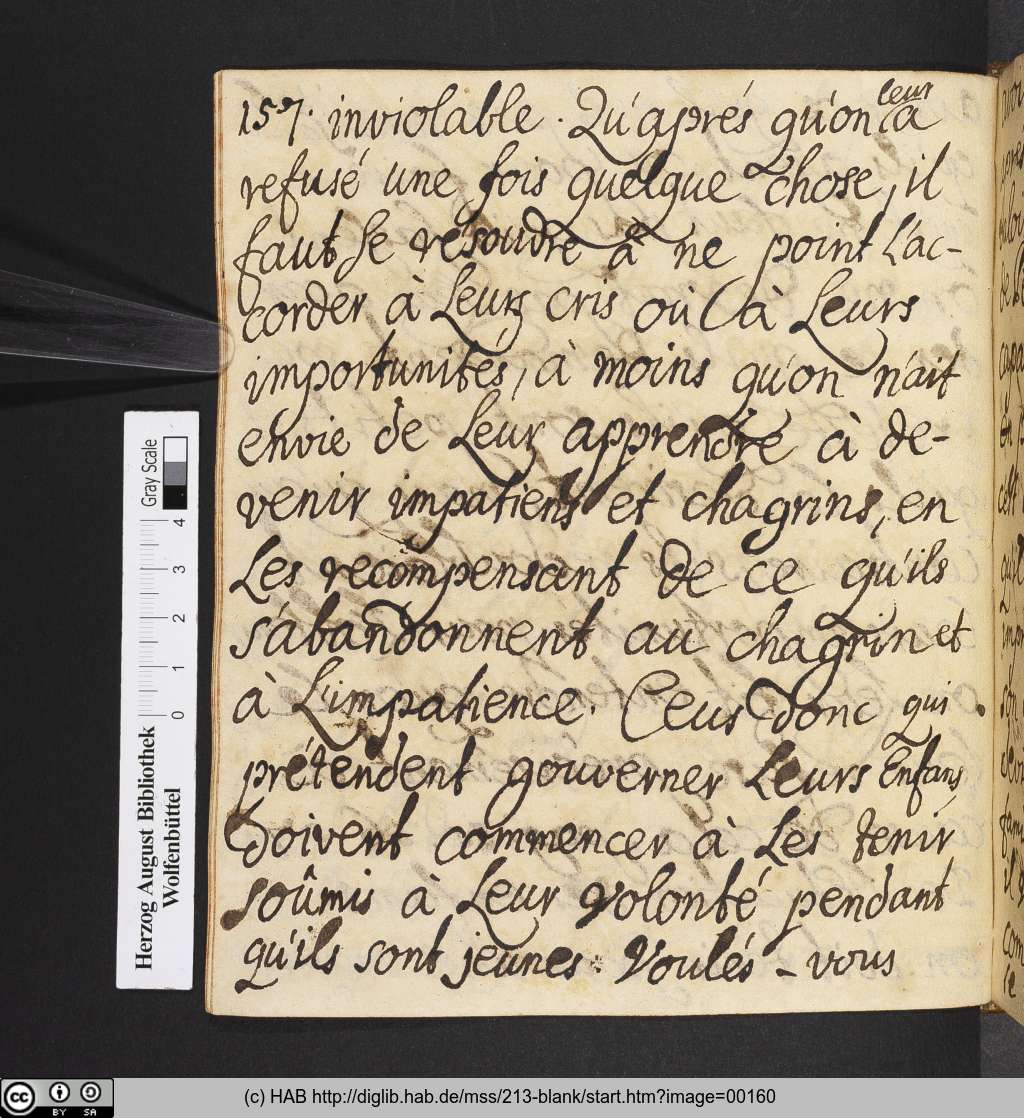 157. inviolable. Qu'aprés qu'on leur a
refusé une fois quelque chose, il
faut se résoudre à ne point L'ac-
corder à Leurs cris où à Leurs
importunités, à moins qu'on n'ait
envie de Leur apprendre à de-
venir impatiens et chagrins, en
Les recompensant de ce qu'ils
s'abandonnent au chagrin et
à L'impatience. Ceus donc qui
prétendent gouverner Leurs Enfans
Doivent commencer à Les tenir
soûmis à Leur volonté pendant
qu'ils sont jeunes. Voulés-vous
Herzog August Bibliothek
Wolfenbüttel
Gray Scale
0 1 2 3 4
cc BY SA
(c) HAB http://diglib.hab.de/mss/213-blank/start.htm?image=00160